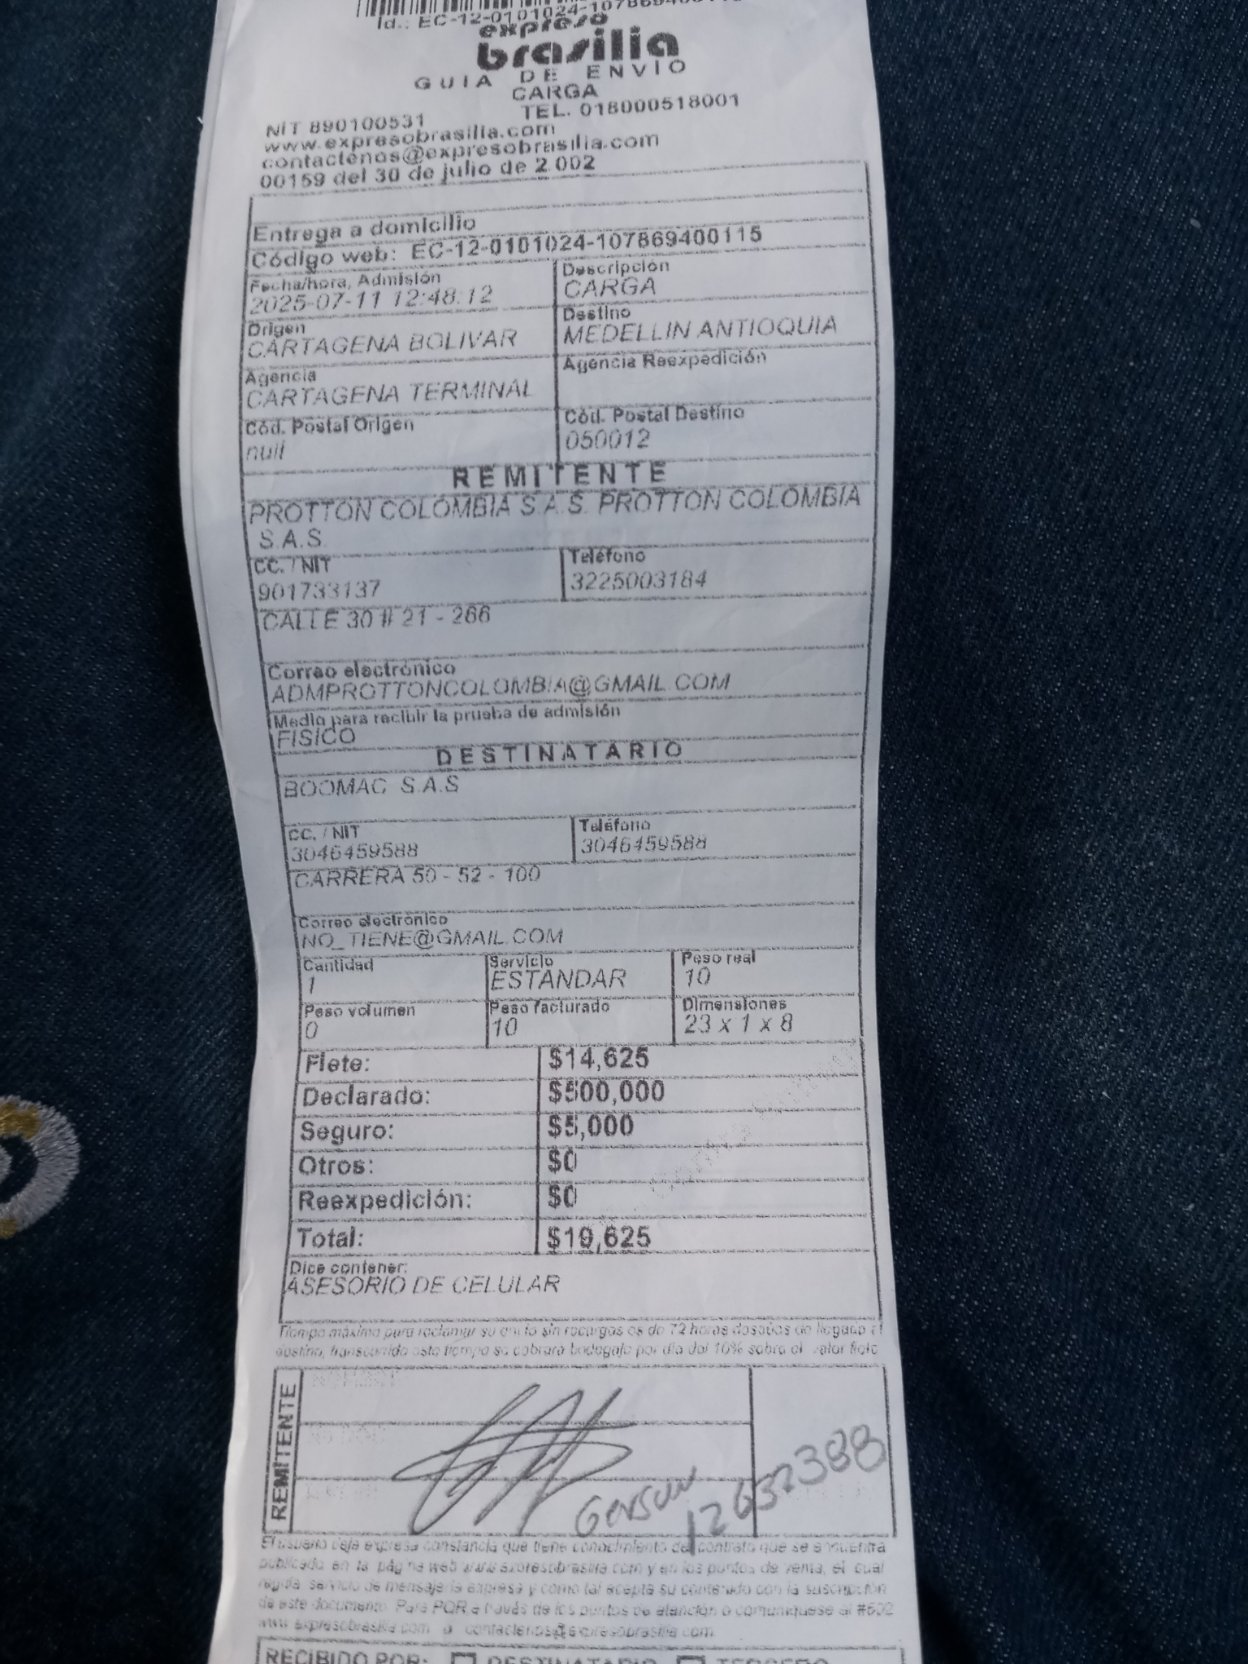 Id.: EC-12-0101024-107869400115
expreso
brasilia
GUIA DE ENVIO
CARGA
TEL. 018000518001
NIT 890100531
www.expresobrasilia.com
contactenos@expresobrasilia.com
00159 del 30 de julio de 2.002
Entrega a domicilio
Código web: EC-12-0101024-107869400115
Fecha/hora, Admisión
2025-07-11 12:48:12
Descripción
CARGA
Origen
CARTAGENA BOLIVAR
Destino
MEDELLIN ANTIOQUIA
Agencia
CARTAGENA TERMINAL
Agencia Reexpedición
Cód. Postal Origen
null
Cód. Postal Destino
050012
REMITENTE
PROTTON COLOMBIA S.A.S. PROTTON COLOMBIA
S.A.S.
CC. / NIT
901733137
Teléfono
3225003184
CALLE 30 # 21 - 266
Correo electrónico
ADMPROTTONCOLOMBIA@GMAIL.COM
Medio para recibir la prueba de admisión
FISICO
DESTINATARIO
BOOMAC S.A.S
CC. / NIT
3046459588
Teléfono
3046459588
CARRERA 50 - 52 - 100
Correo electrónico
NO_TIENE@GMAIL.COM
Cantidad
1
Servicio
ESTANDAR
Peso real
10
Peso volumen
0
Peso facturado
10
Dimensiones
23 x 1 x 8
Flete: $14,625
Declarado: $500,000
Seguro: $5,000
Otros: $0
Reexpedición: $0
Total: $19,625
Dice contener:
ASESORIO DE CELULAR
Tiempo máximo para reclamar su envío sin recargos es de 72 horas después de llegado al
destino, transcurrido este tiempo se cobrará bodegaje por día del 10% sobre el valor flete
REMITENTE
Gerson
12632388
El usuario deja expresa constancia que tiene conocimiento del contrato que se encuentra
publicado en la página web www.expresobrasilia.com y en los puntos de venta, el cual
regula servicio de mensajería expresa y como tal acepta su contenido con la suscripción
de este documento. Para PQR a través de los puntos de atención o comuníquese al #502
www.expresobrasilia.com o contactenos@expresobrasilia.com
RECIBIDO POR: DESTINATARIO TERCERO